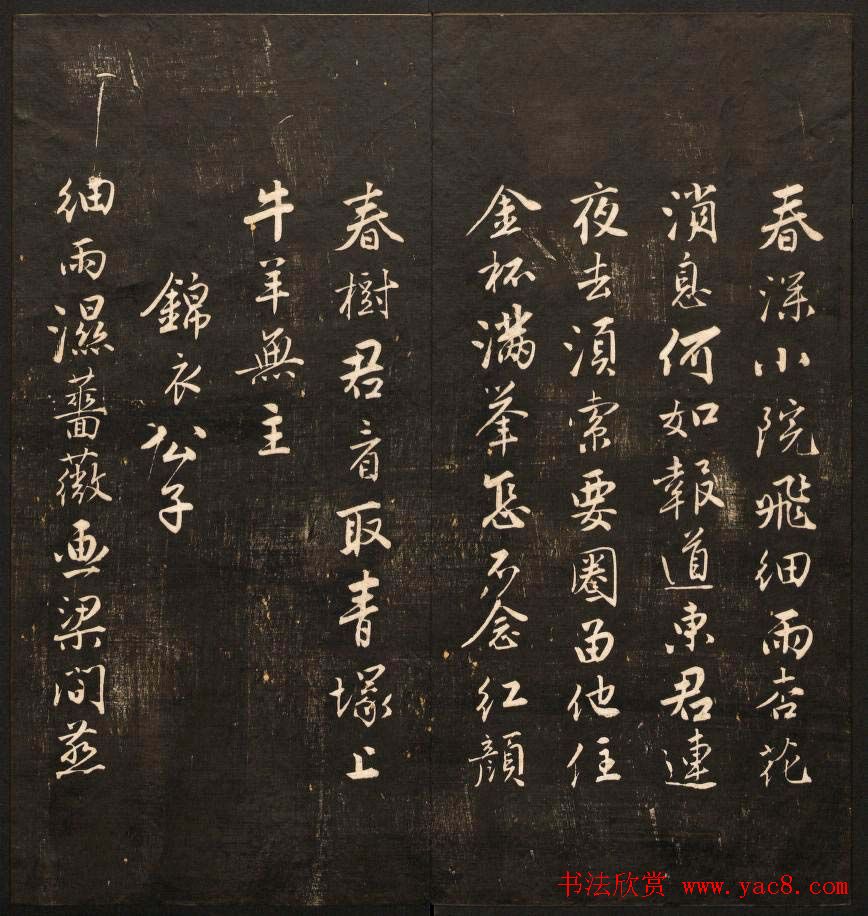 春深小院飛細雨杏花
消息何如報道東君連
夜去須索要圈留他住
金杯滿举怎不念红顔
春樹君看取青塚上
牛羊無主
錦衣公子
細雨濕薔薇画梁間燕
书法欣赏 www.yac8.com